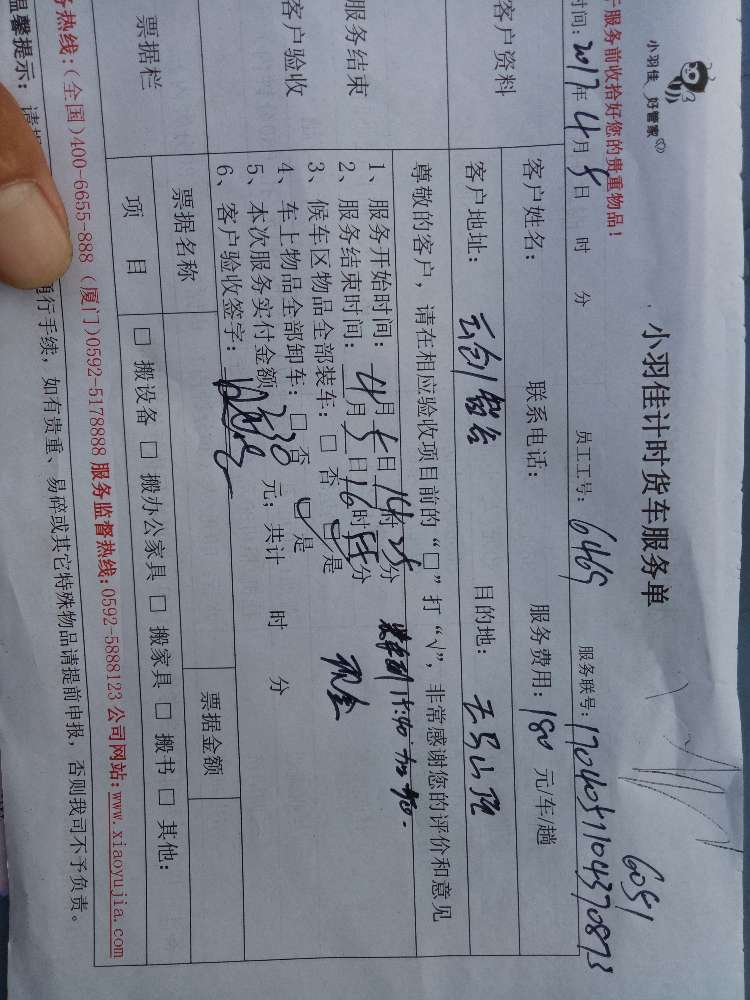 小羽佳 好管家
小羽佳计时货车服务单
6051
服务前收拾好您的贵重物品！
时间：2017年4月5日 时 分 员工工号：6469 服务联号：1704051104370873
客户资料
客户姓名： 联系电话： 服务费用：180 元/车/趟
客户地址： 云创智谷 目的地：
服务结束
客户验收
尊敬的客户，请在相应验收项目前的“□”打“√”，非常感谢您的评价和意见
1、服务开始时间：4月5日14时25分
2、服务结束时间：4月5日16时55分
3、候车区物品全部装车：□否 □是 现金
4、车上物品全部卸车：□否 □是
5、本次服务实付金额 元；共计 时 分
6、客户验收签字：
票据栏
票据名称 票据金额
项目 □搬设备 □搬办公家具 □搬家具 □搬书 □其他：
务热线：(全国)400-6655-888 (厦门)0592-5178888 服务监督热线：0592-5888123 公司网站：www.xiaoyujia.com
温馨提示：请 通行手续，如有贵重、易碎或其它特殊物品请提前申报，否则我司不予负责。